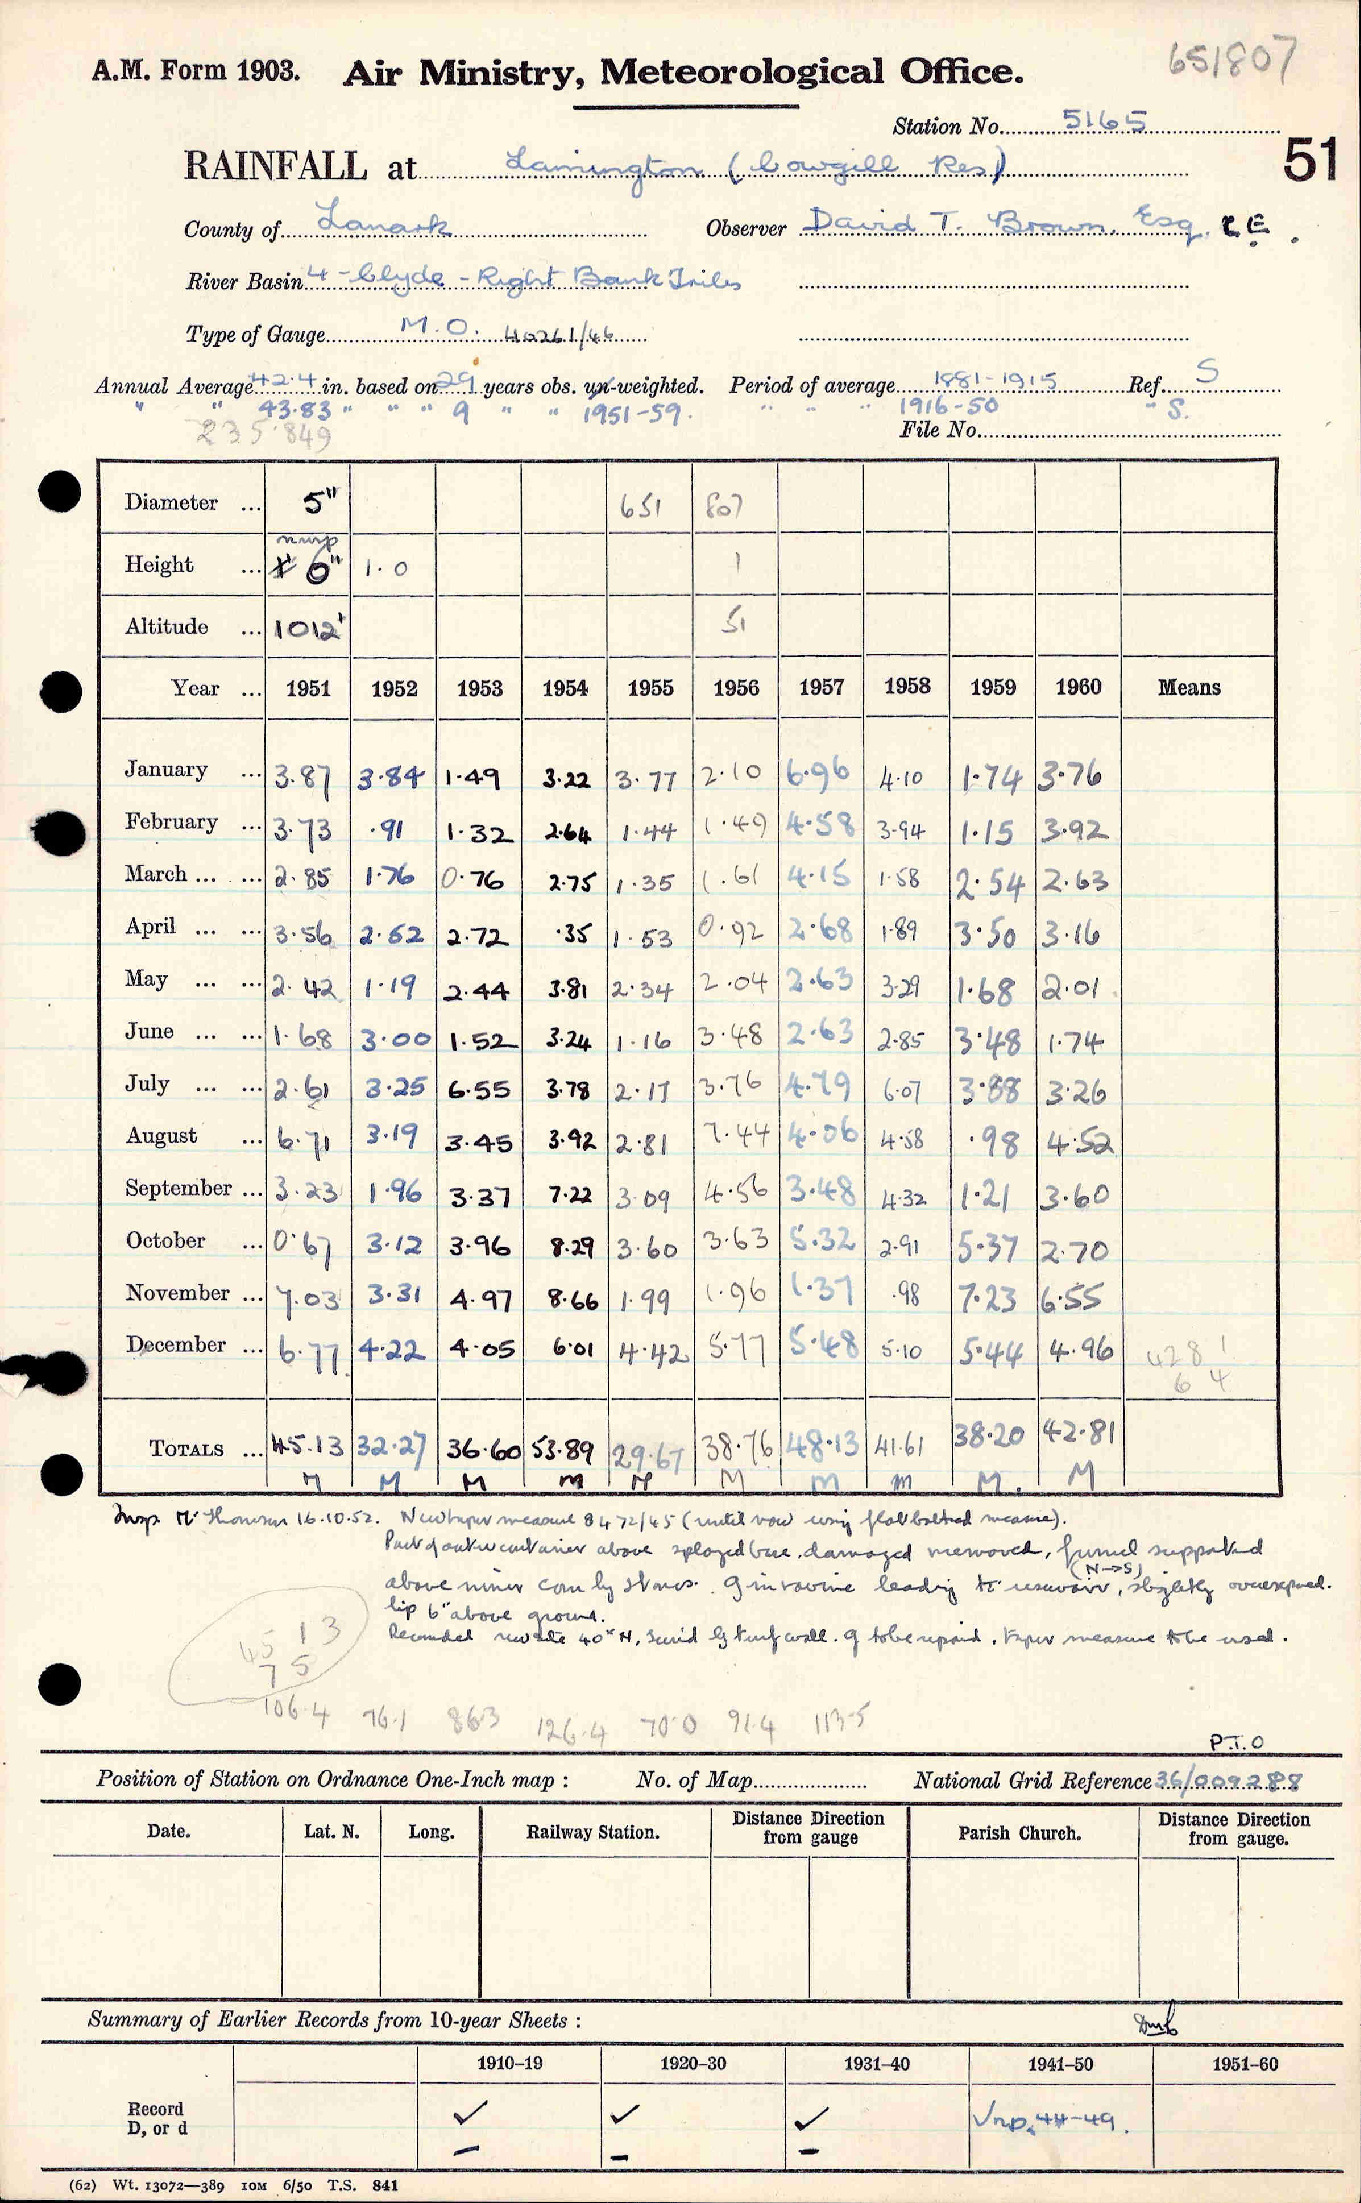 651807
A.M. Form 1903. Air Ministry, Meteorological Office.
Station No. 5165
51
RAINFALL at Lamington (Cowgill Res)
County of Lanark Observer David T. Brown, Esq. C.E.
River Basin 4 - Clyde - Right Bank Tribs
Type of Gauge M.O. 40261/46
Annual Average 42.4 in. based on 29 years obs. un-weighted. Period of average 1881-1915 Ref. S
" " 43.83 " " " 9 " " 1951-59. " " " 1916-50 " S.
235.849
File No.
Diameter ... 5" 651 807
Height ... 1' 6" 1.0 1
Altitude ... 1012' 51
Year ... 1951 1952 1953 1954 1955 1956 1957 1958 1959 1960 Means
January ... 3.87 3.84 1.49 3.22 3.77 2.10 6.96 4.10 1.74 3.76
February ... 3.73 .91 1.32 2.64 1.44 1.49 4.58 3.94 1.15 3.92
March ... ... 2.85 1.76 0.76 2.75 1.35 1.61 4.15 1.58 2.54 2.63
April ... ... 3.56 2.52 2.72 .35 1.53 0.92 2.68 1.89 3.50 3.16
May ... ... 2.42 1.19 2.44 3.81 2.34 2.04 2.63 3.29 1.68 2.01
June ... ... 1.68 3.00 1.52 3.24 1.16 3.48 2.63 2.85 3.48 1.74
July ... ... 2.61 3.25 6.55 3.78 2.17 3.76 4.79 6.07 3.88 3.26
August ... 6.71 3.19 3.45 3.92 2.81 7.44 4.06 4.58 .98 4.52
September ... 3.23 1.96 3.37 7.22 3.09 4.56 3.48 4.32 1.21 3.60
October ... 0.67 3.12 3.96 8.29 3.60 3.63 5.32 2.91 5.37 2.70
November ... 7.03 3.31 4.97 8.66 1.99 1.96 1.37 .98 7.23 6.55
December ... 6.77 4.22 4.05 6.01 4.42 5.77 5.48 5.10 5.44 4.96 428 1
6 4
TOTALS ... 45.13 32.27 36.60 53.89 29.67 38.76 48.13 41.61 38.20 42.81
M M M M M M M M M. M
Insp. Mr Thomson 16.10.52. New taper measure 8472/45 (until now using flat bottomed measure).
Part of outer container above splayed base, damaged removed, funnel supported
(N→S)
above inner can by stones. g in ravine leading to reservoir, slightly overexposed.
lip 6" above ground.
Recomded new site 40x N, by turf wall. g to be repaird. Taper measure to be used.
45 13
75
106.4 76.1 86.3 126.4 70.0 91.4 113.5
P.T.O
Position of Station on Ordnance One-Inch map : No. of Map National Grid Reference 36/009288
Date. Lat. N. Long. Railway Station. Distance Direction from gauge Parish Church. Distance Direction from gauge.
Summary of Earlier Records from 10-year Sheets :
1910-19 1920-30 1931-40 1941-50 1951-60
Record
D, or d ✓ ✓ ✓ 44-49.
– – –
(62) Wt. 13072—389 10M 6/50 T.S. 841